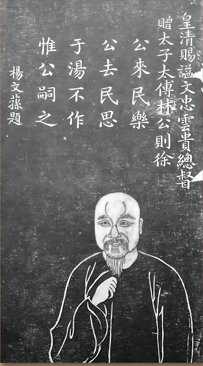 皇清賜謚文忠雲貴總督
贈太子太傅林公則徐
公來民樂
公去民思
于湯不作
惟公嗣之
楊文蓀題